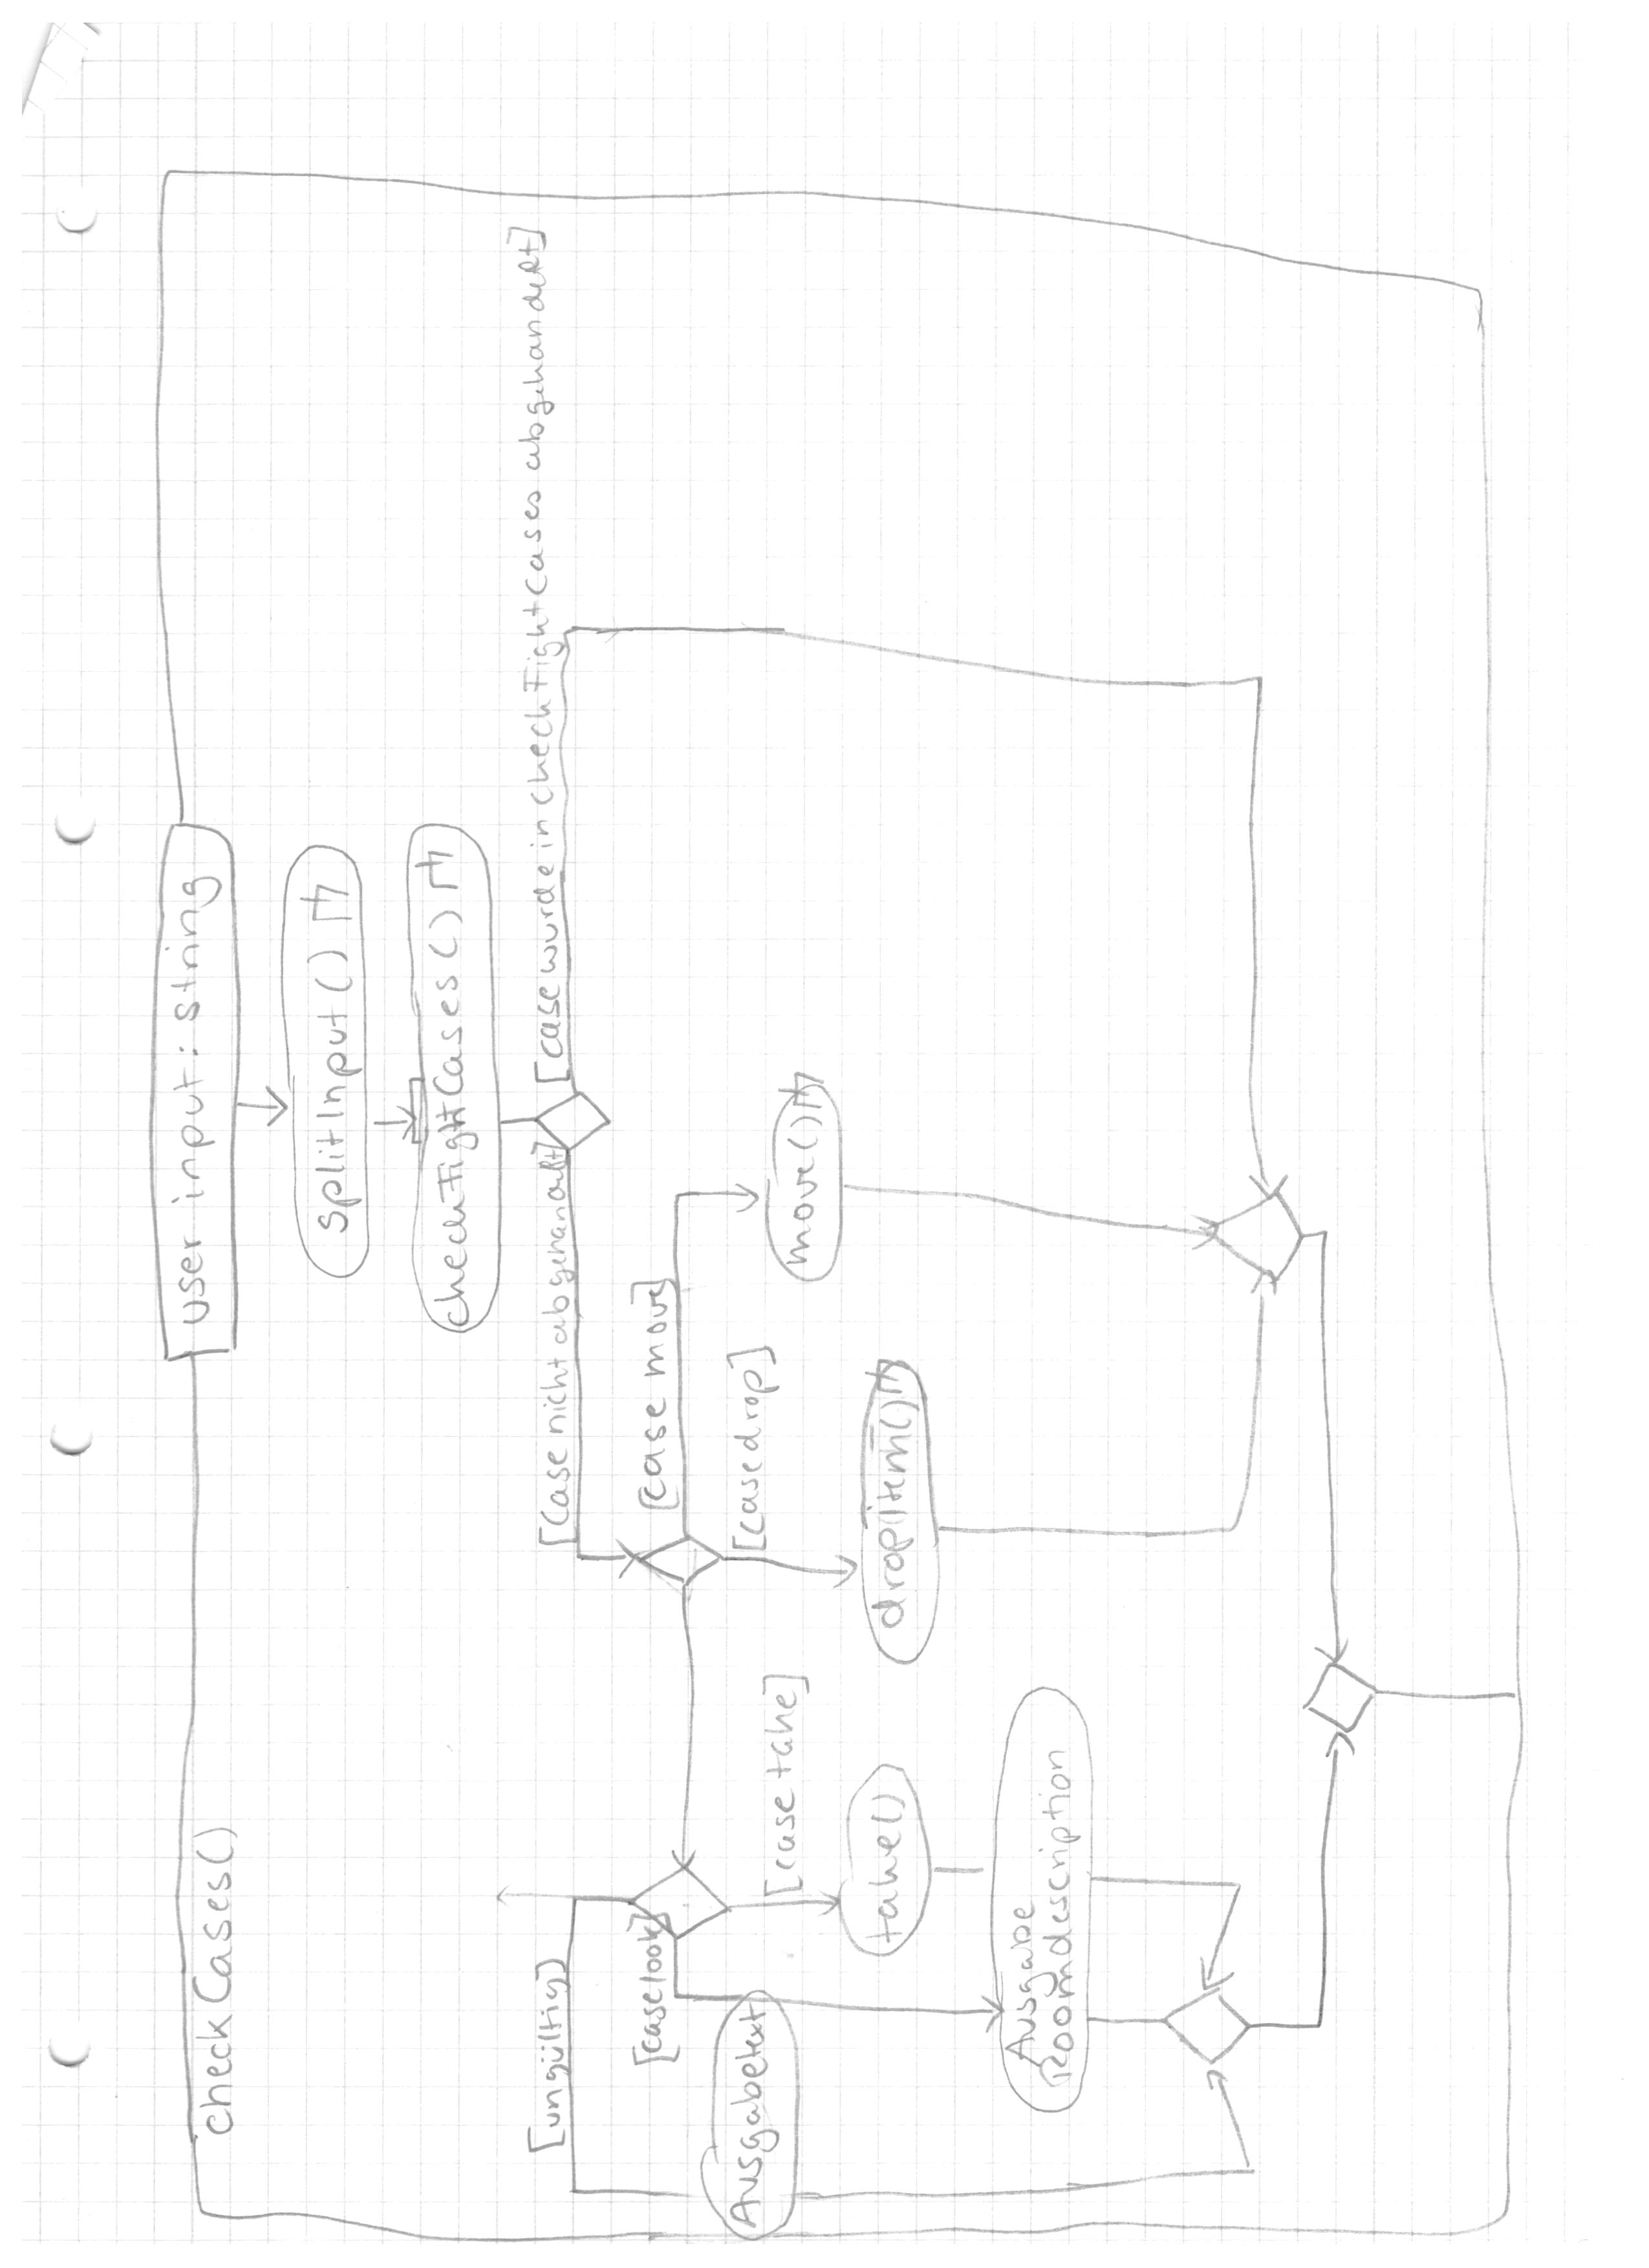 user input: string
checkCases()
splitInput()
checkFightCases()
[ungültig]
[Case nicht abgehandelt]
[case wurde in checkFightCases abgehandelt]
[case look]
[case move]
Ausgabetext
[case drop]
[case take]
move()
take()
dropitem()
Ausgabe
Roomdescription